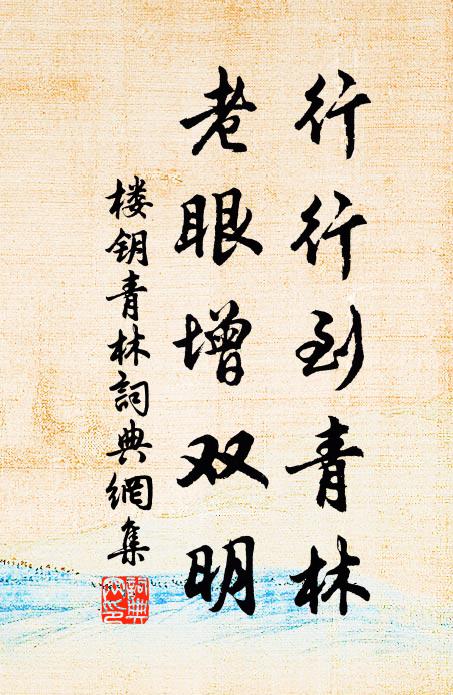 行行到青林
老眼增双明
楼钥青林詞典網集